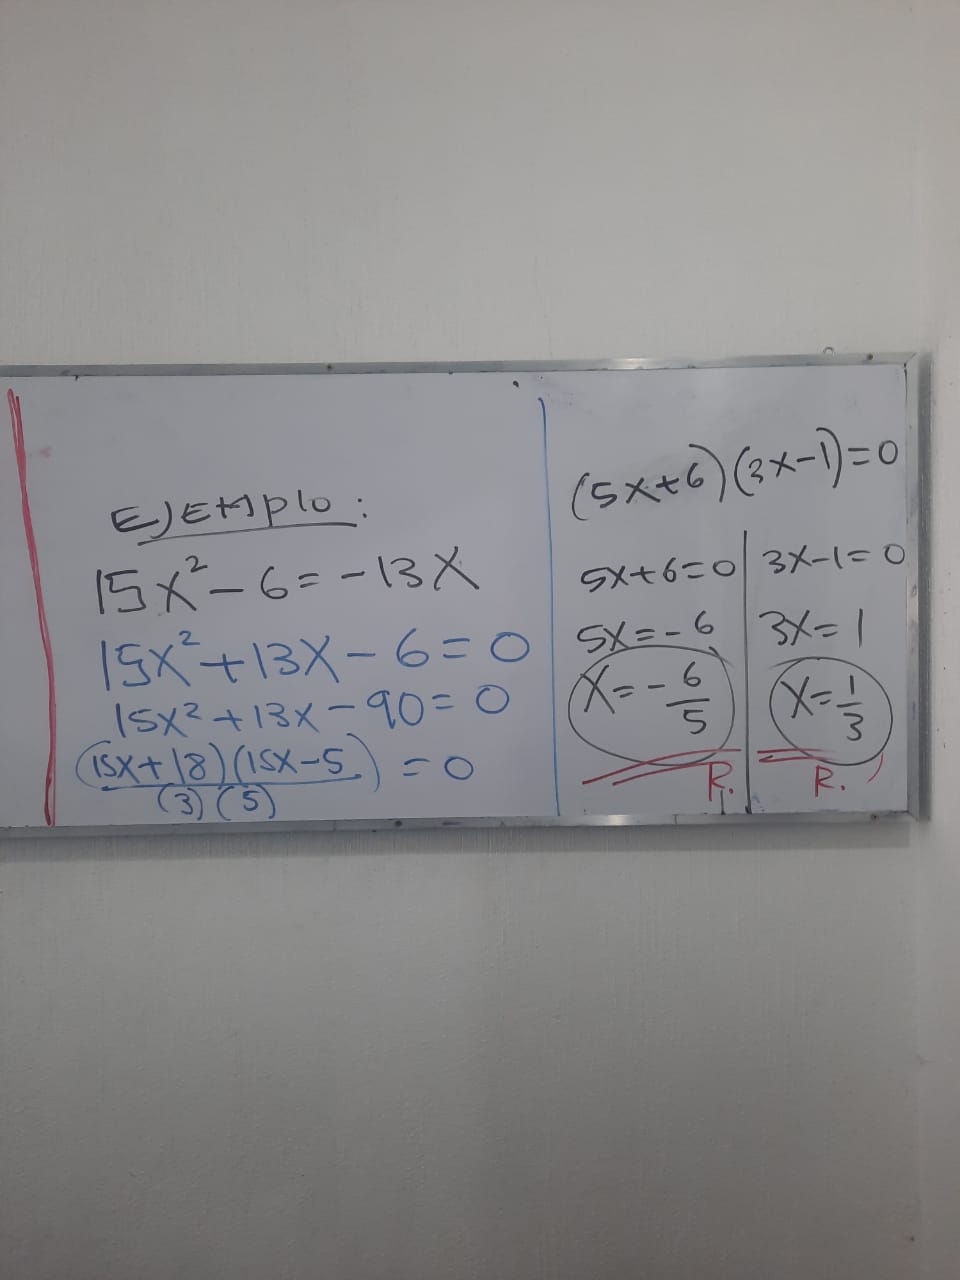 EJEMPlO:
15X² - 6 = -13X
15X² + 13X - 6 = 0
15X² + 13X - 90 = 0
(15X + 18)(15X - 5) = 0
(3) (5)
(5X + 6)(3X - 1) = 0
5X + 6 = 0
5X = -6
X = - 6/5
R.
3X - 1 = 0
3X = 1
X = 1/3
R.